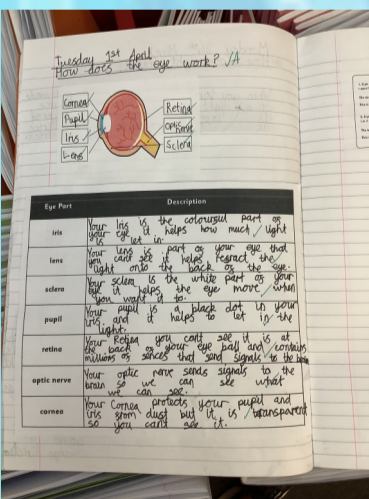 Tuesday 1st April
How does the eye work? √A
Cornea
Pupil
Iris
Lens
Retina
Optic
nerve
Sclera
Eye Part
Description
iris
Your Iris is the coloursul part os
your eye it helps how much light
is let in.
lens
Your lens is part os your eye that
you cant see it helps resract the
light onto the back os the eye.
sclera
Your sclera is the white part os your
eye it helps the eye move when
you want it to.
pupil
Your pupil is a black dot in your
iris and it helps to let in the
light.
retina
Your Retina you can't see it is at
the back os your eye ball and contains
millions os sences that send signals to the brain
optic nerve
Your optic nerve sends signals to the
brain so we can see what
we can see.
cornea
Your Cornea protects your pupil and
iris srom dust but it is transparent
so you can't see it.